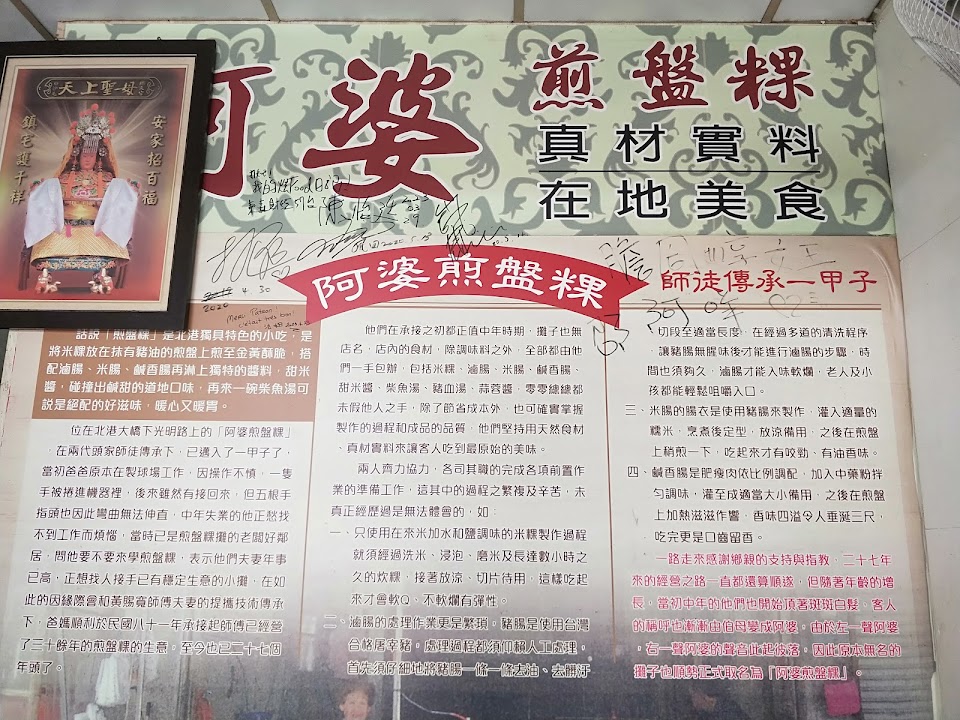 天上聖母
安家招百福
鎮宅護千祥
阿婆
煎盤粿
真材實料
在地美食
阿婆煎盤粿
師徒傳承一甲子
話說「煎盤粿」是北港獨具特色的小吃，是
將米粿放在抹有豬油的煎盤上煎至金黃酥脆，搭
配滷腸、米腸、鹹香腸再淋上獨特的醬料，甜米
醬，碰撞出鹹甜的道地口味，再來一碗柴魚湯可
說是絕配的好滋味，暖心又暖胃。
位在北港大橋下光明路上的「阿婆煎盤粿」
，在兩代頭家師徒傳承下，已邁入了一甲子了，
當初爸爸原本在製球場工作，因操作不慎，一隻
手被捲進機器裡，後來雖然有接回來，但五根手
指頭也因此彎曲無法伸直，中年失業的他正愁找
不到工作而煩惱，當時已是煎盤粿攤的老闆好鄰
居，問他要不要來學煎盤粿，表示他們夫妻年事
已高，正想找人接手已有穩定生意的小攤，在如
此的因緣際會和黃賜寬師傅夫妻的提攜技術傳承
下，爸媽順利於民國八十一年承接起師傅已經營
了三十餘年的煎盤粿的生意，至今也已二十七個
年頭了。
他們在承接之初都正值中年時期，攤子也無
店名，店內的食材，除調味料之外，全部都由他
們一手包辦，包括米粿、滷腸、米腸、鹹香腸、
甜米醬、柴魚湯、豬血湯、蒜蓉醬，零零總總都
未假他人之手，除了節省成本外，也可確實掌握
製作的過程和成品的品質，他們堅持用天然食材
、真材實料來讓客人吃到最原始的美味。
兩人齊力協力，各司其職的完成各項前置作
業的準備工作，這其中的過程之繁複及辛苦，未
真正經歷過是無法體會的，如：
一、只使用在來米加水和鹽調味的米粿製作過程
就須經過洗米、浸泡、磨米及長達數小時之
久的炊粿，接著放涼、切片待用，這樣吃起
來才會軟Q、不軟爛有彈性。
二、滷腸的處理作業更是繁瑣，豬腸是使用台灣
合格屠宰豬，處理過程都須仰賴人工處理，
首先須仔細地將豬腸一條一條去油、去髒汙
，切段至適當長度，在經過多道的清洗程序
，讓豬腸無腥味後才能進行滷腸的步驟，時
間也須夠久，滷腸才能入味軟爛，老人及小
孩都能輕鬆咀嚼入口。
三、米腸的腸衣是使用豬腸來製作，灌入適量的
糯米，烹煮後定型，放涼備用，之後在煎盤
上稍煎一下，吃起來才有咬勁、有油香味。
四、鹹香腸是肥瘦肉依比例調配，加入中藥粉拌
勻調味，灌至成適當大小備用，之後在煎盤
上加熱滋滋作響，香味四溢令人垂涎三尺，
吃完更是口齒留香。
一路走來感謝鄉親的支持與指教，二十七年
來的經營之路一直都還算順遂，但隨著年齡的增
長，當初中年的他們也開始頂著斑斑白髮，客人
的稱呼也漸漸由伯母變成阿婆，由於左一聲阿婆
、右一聲阿婆的聲音此起彼落，因此原本無名的
攤子也順勢正式取名為「阿婆煎盤粿」。